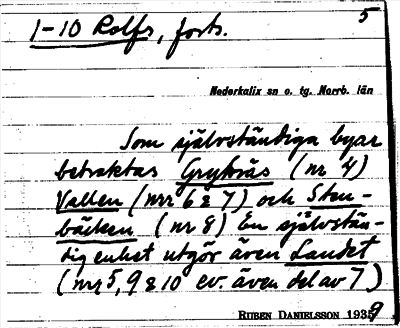 5
1-10 Rolfs, forts.
Nederkalix sn o. tg. Norrb. län
Som självständiga byar
betraktas Grytnäs (nr 4)
Vallen (nrr 6 & 7) och Sten-
bäcken (nr 8) En självstän-
dig enhet utgör även Sundet
(nrr 5, 9 & 10 ev. även del av 7)
RUBEN DANIELSSON 1939